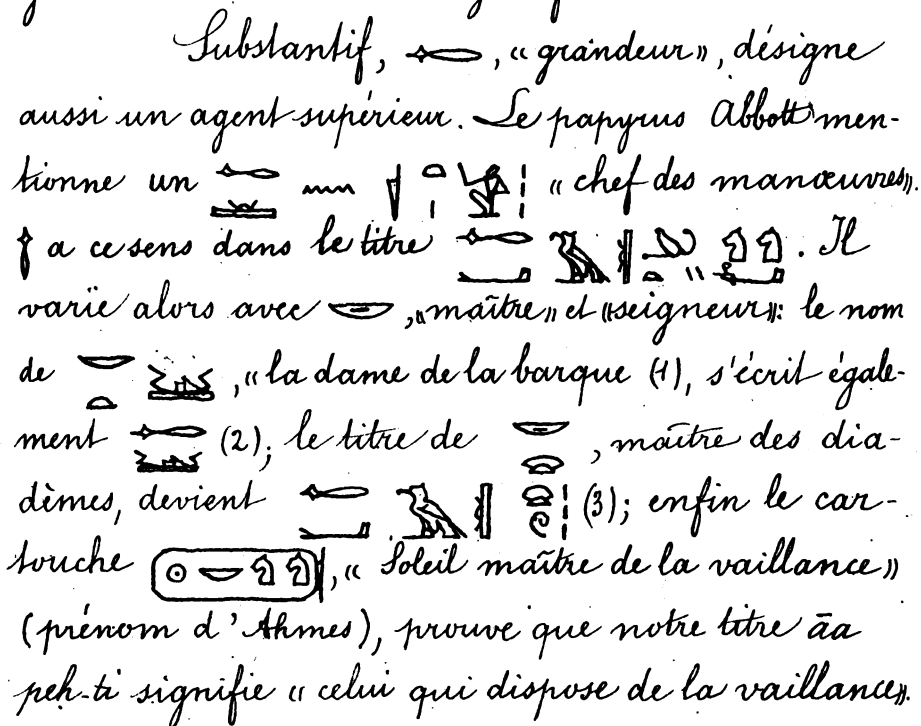 Substantif, 𓉻, « grandeur », désigne
aussi un agent supérieur. Le papyrus Abbott men-
tionne un « chef des manœuvres ».
a ce sens dans le titre . Il
varie alors avec 𓎟, « maître » et « seigneur » : le nom
de , « la dame de la barque (1), s'écrit égale-
ment (2); le titre de , maître des dia-
dèmes, devient (3); enfin le car-
touche , « Soleil maître de la vaillance »
(prénom d'Ahmes), prouve que notre titre āa
peh-ti signifie « celui qui dispose de la vaillance ».